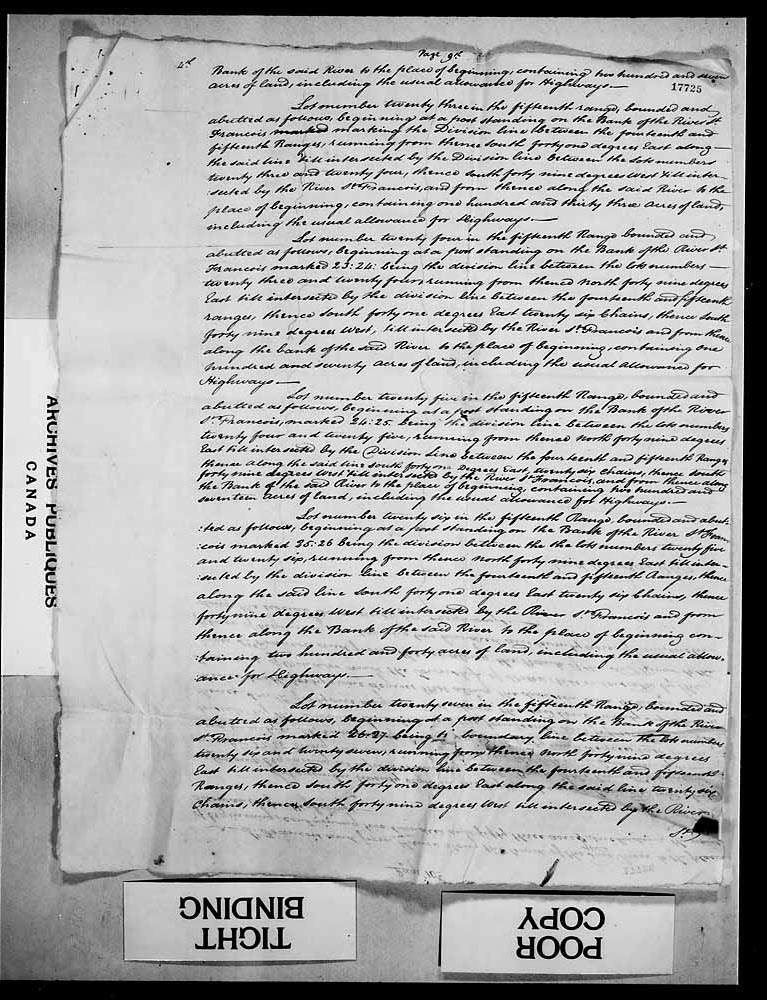 Page 9th
4th
Bank of the said River to the place of beginning, containing two hundred and seven
17725
acres of land, including the usual allowance for Highways.—
Lot number twenty three in the fifteenth range, bounded and
abutted as follows, beginning at a post standing on the Bank of the River St
Francois marked marking the Division line between the fourteenth and
fifteenth Ranges, running from thence South forty one degrees East along —
the said line till intersected by the Division line between the lots numbers
twenty three and twenty four, thence South forty nine degrees West till inter-
:sected by the River St Francois, and from thence along the said River to the
place of beginning, containing one hundred and thirty three Acres of land,
including the usual allowance for Highways.—
Lot number twenty four in the fifteenth Range bounded and
abutted as follows, beginning at a post standing on the Bank of the River St
Francois marked 23:24: being the division line between the lots numbers —
twenty three and twenty four, running from thence North forty nine degrees
East till intersected by the division line between the fourteenth and fifteenth
ranges, thence South forty one degrees East twenty six Chains, thence South
forty nine degrees West, till intersected by the River St Francois and from thence
along the bank of the said River to the place of beginning, containing one
hundred and seventy acres of land, including the usual allowance for
Highways —
Lot number twenty five in the fifteenth Range, bounded and
abutted as follows, beginning at a post standing on the Bank of the River
St Francois, marked 24:25 being the division line between the lots numbers
twenty four and twenty five, running from thence North forty nine degrees
East till intersected by the Division Line between the fourteenth and fifteenth Ranges
thence along the said line South forty one degrees East, twenty six Chains, thence South
forty nine degrees West till intersected by the River St Francois, and from thence along
the Bank of the said River to the place of beginning, containing two hundred and
seventeen acres of land, including the usual allowance for Highways —
Lot number twenty six in the fifteenth Range, bounded and abut-
:ted as follows, beginning at a post standing on the Bank of the River St Fran-
:cois marked 25:26 being the division between the the lots numbers twenty five
and twenty six, running from thence North forty nine degrees East till inter-
:sected by the division line between the fourteenth and fifteenth Ranges, thence
along the said line South forty one degrees East twenty six Chains, thence
forty nine degrees West till intersected by the River St Francois and from
thence along the Bank of the said River to the place of beginning con-
:taining two hundred and forty acres of land, including the usual allow-
:ance for Highways.—
Lot number twenty seven in the fifteenth Range, bounded and
abutted as follows, beginning at a post standing on the Bank of the River
St Francois marked 26:27 being boundary line between the lots numbers
twenty six and twenty seven, running from thence North forty nine degrees
East till intersected by the division line between the fourteenth and fifteenth
Ranges, thence South forty one degrees East along the said line twenty six
Chains, thence South forty nine degrees West till intersected by the River
St
ARCHIVES PUBLIQUES
CANADA
TIGHT
BINDING
POOR
COPY